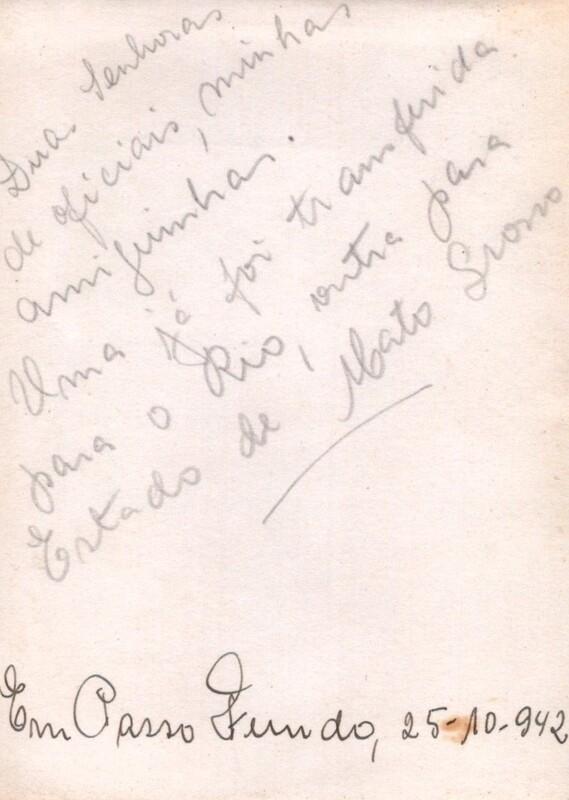 Duas Senhoras
de oficiais, minhas
amiguinhas.
Uma já foi transferida
para o Rio, outra para
Estado de Mato Grosso
Em Passo Fundo, 25-10-942